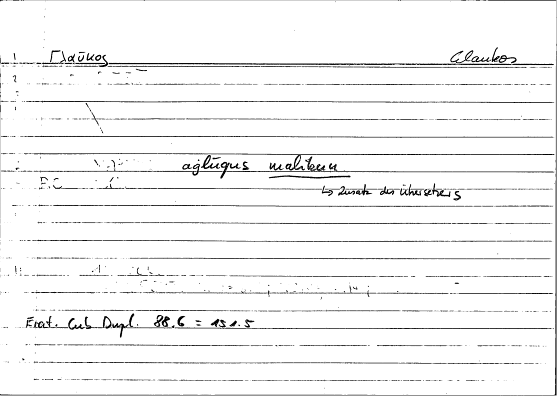 Γλαῦκος Glaukos
aġlūqus malikun
↳ Zusatz des Übersetzers
Erat. Cub Dupl. 88.6 = 151.5